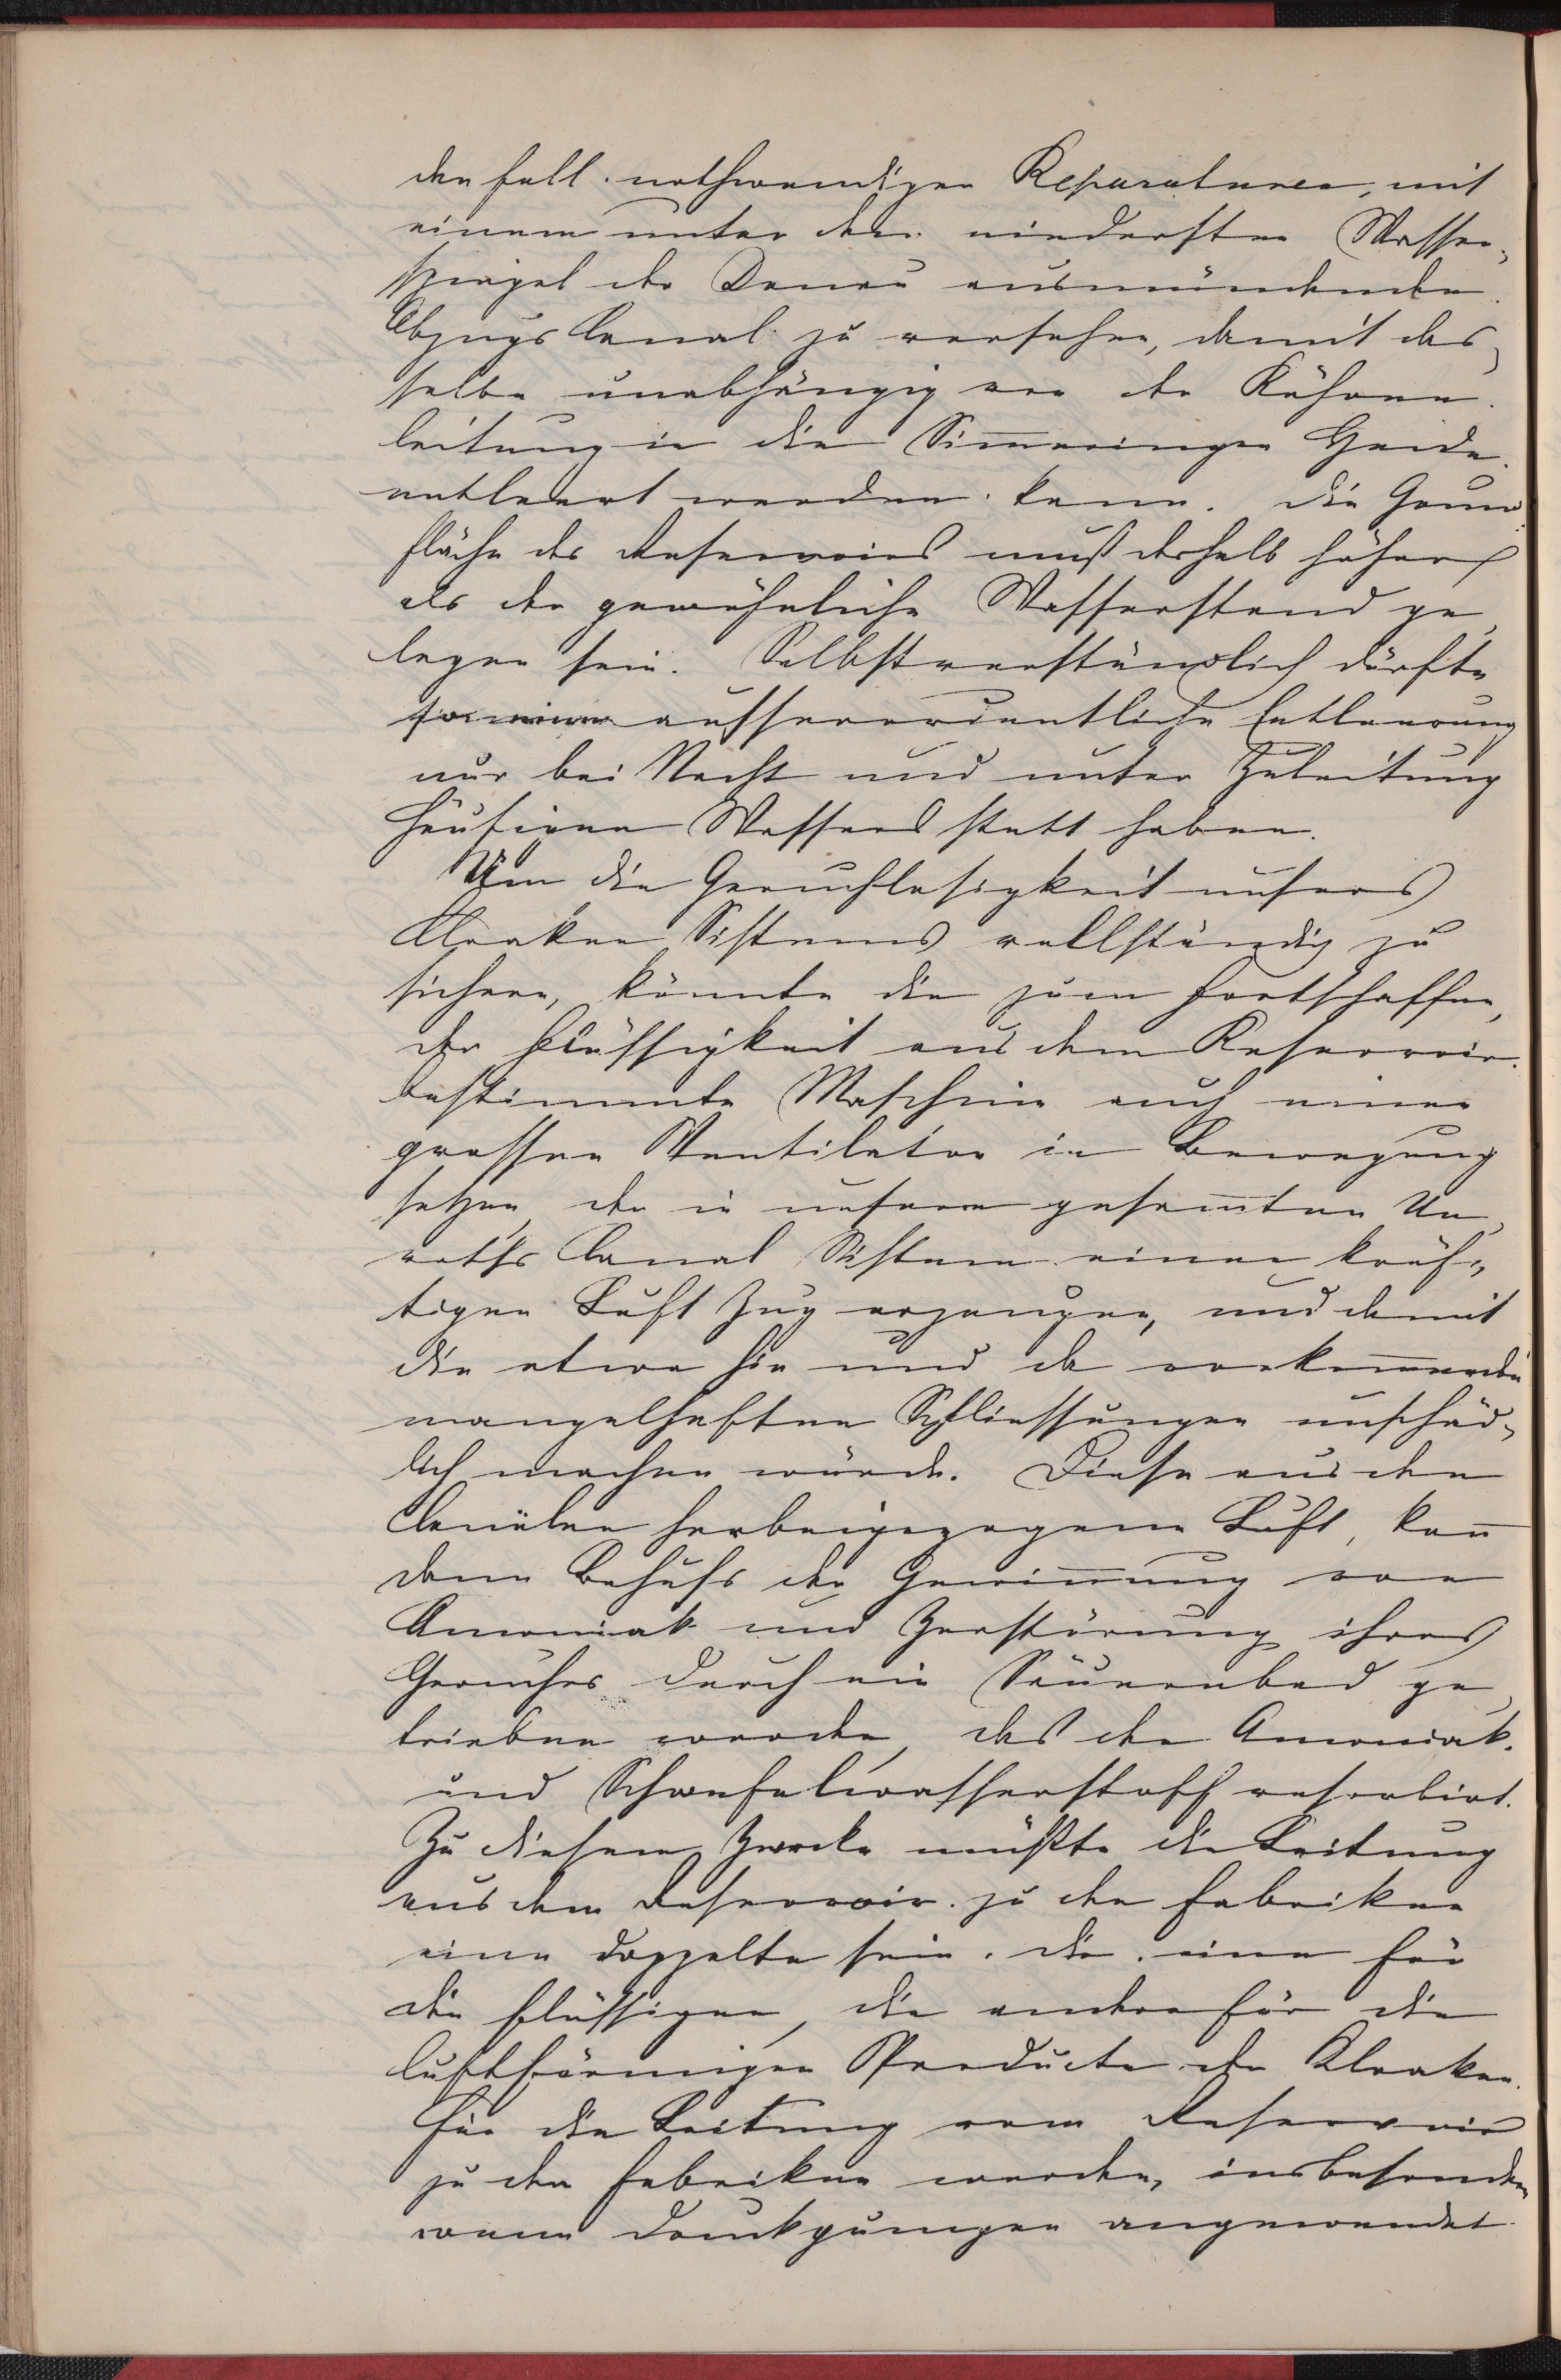 den Fall nothwendiger Reparaturen, mit
einem unter den niedersten Wasser-
spiegel der Donau ausmündenden
Abzugs Canal zu versehen, damit das-
selbe unabhängig von der Röhren
leitung in die Sim̅eringer Haide
entleert werden kann. Die Grund
fläche des Reservoirs muß deshalb höher
als der gewöhnliche Wasserstand ge
legen sein. Selbstverständlich dürfte
so eine aussерordentliche Entleerung
nur bei Nacht und unter Zuleitung
häufigen Wassers statt haben.
Um die Geruchlosigkeit unsers
Kloaken Sistems vollständig zu
sichern, könnte die zum Fortschaffen
der Flüssigkeit aus dem Reservoir
bestimmte Maschine auch einen
grossen Ventilator in Bewegung
setzen, der in unserm gesam̅ten Un
raths Canal Sistem einen kräf-
tigen Luft Zug erzeugen, und damit
die etwa hie und da vorkom̅enden
mangelhaften Schliessungen unschäd-
lich machen würde. Diese aus den
Canälen herbeigezogene Luft, kan̅
dann Behufs der Gewin̅ung von
Amoniak und Zerstörung ihres
Geruches durch ein Säurenbad ge
trieben werden, das den Amoniak
und Schwefelwasserstoff resorbirt.
Zu diesem Zwecke müßte die Leitung
aus dem Reservoir zu den Fabriken
eine doppelte sein, die eine für
die flüssigen, die andere für die
luftförmigen Producte der Kloaken.
Für die Leitung vom Reservoir
zu den Fabriken werden, insbesondere
wenn Druckpumpen angewendet